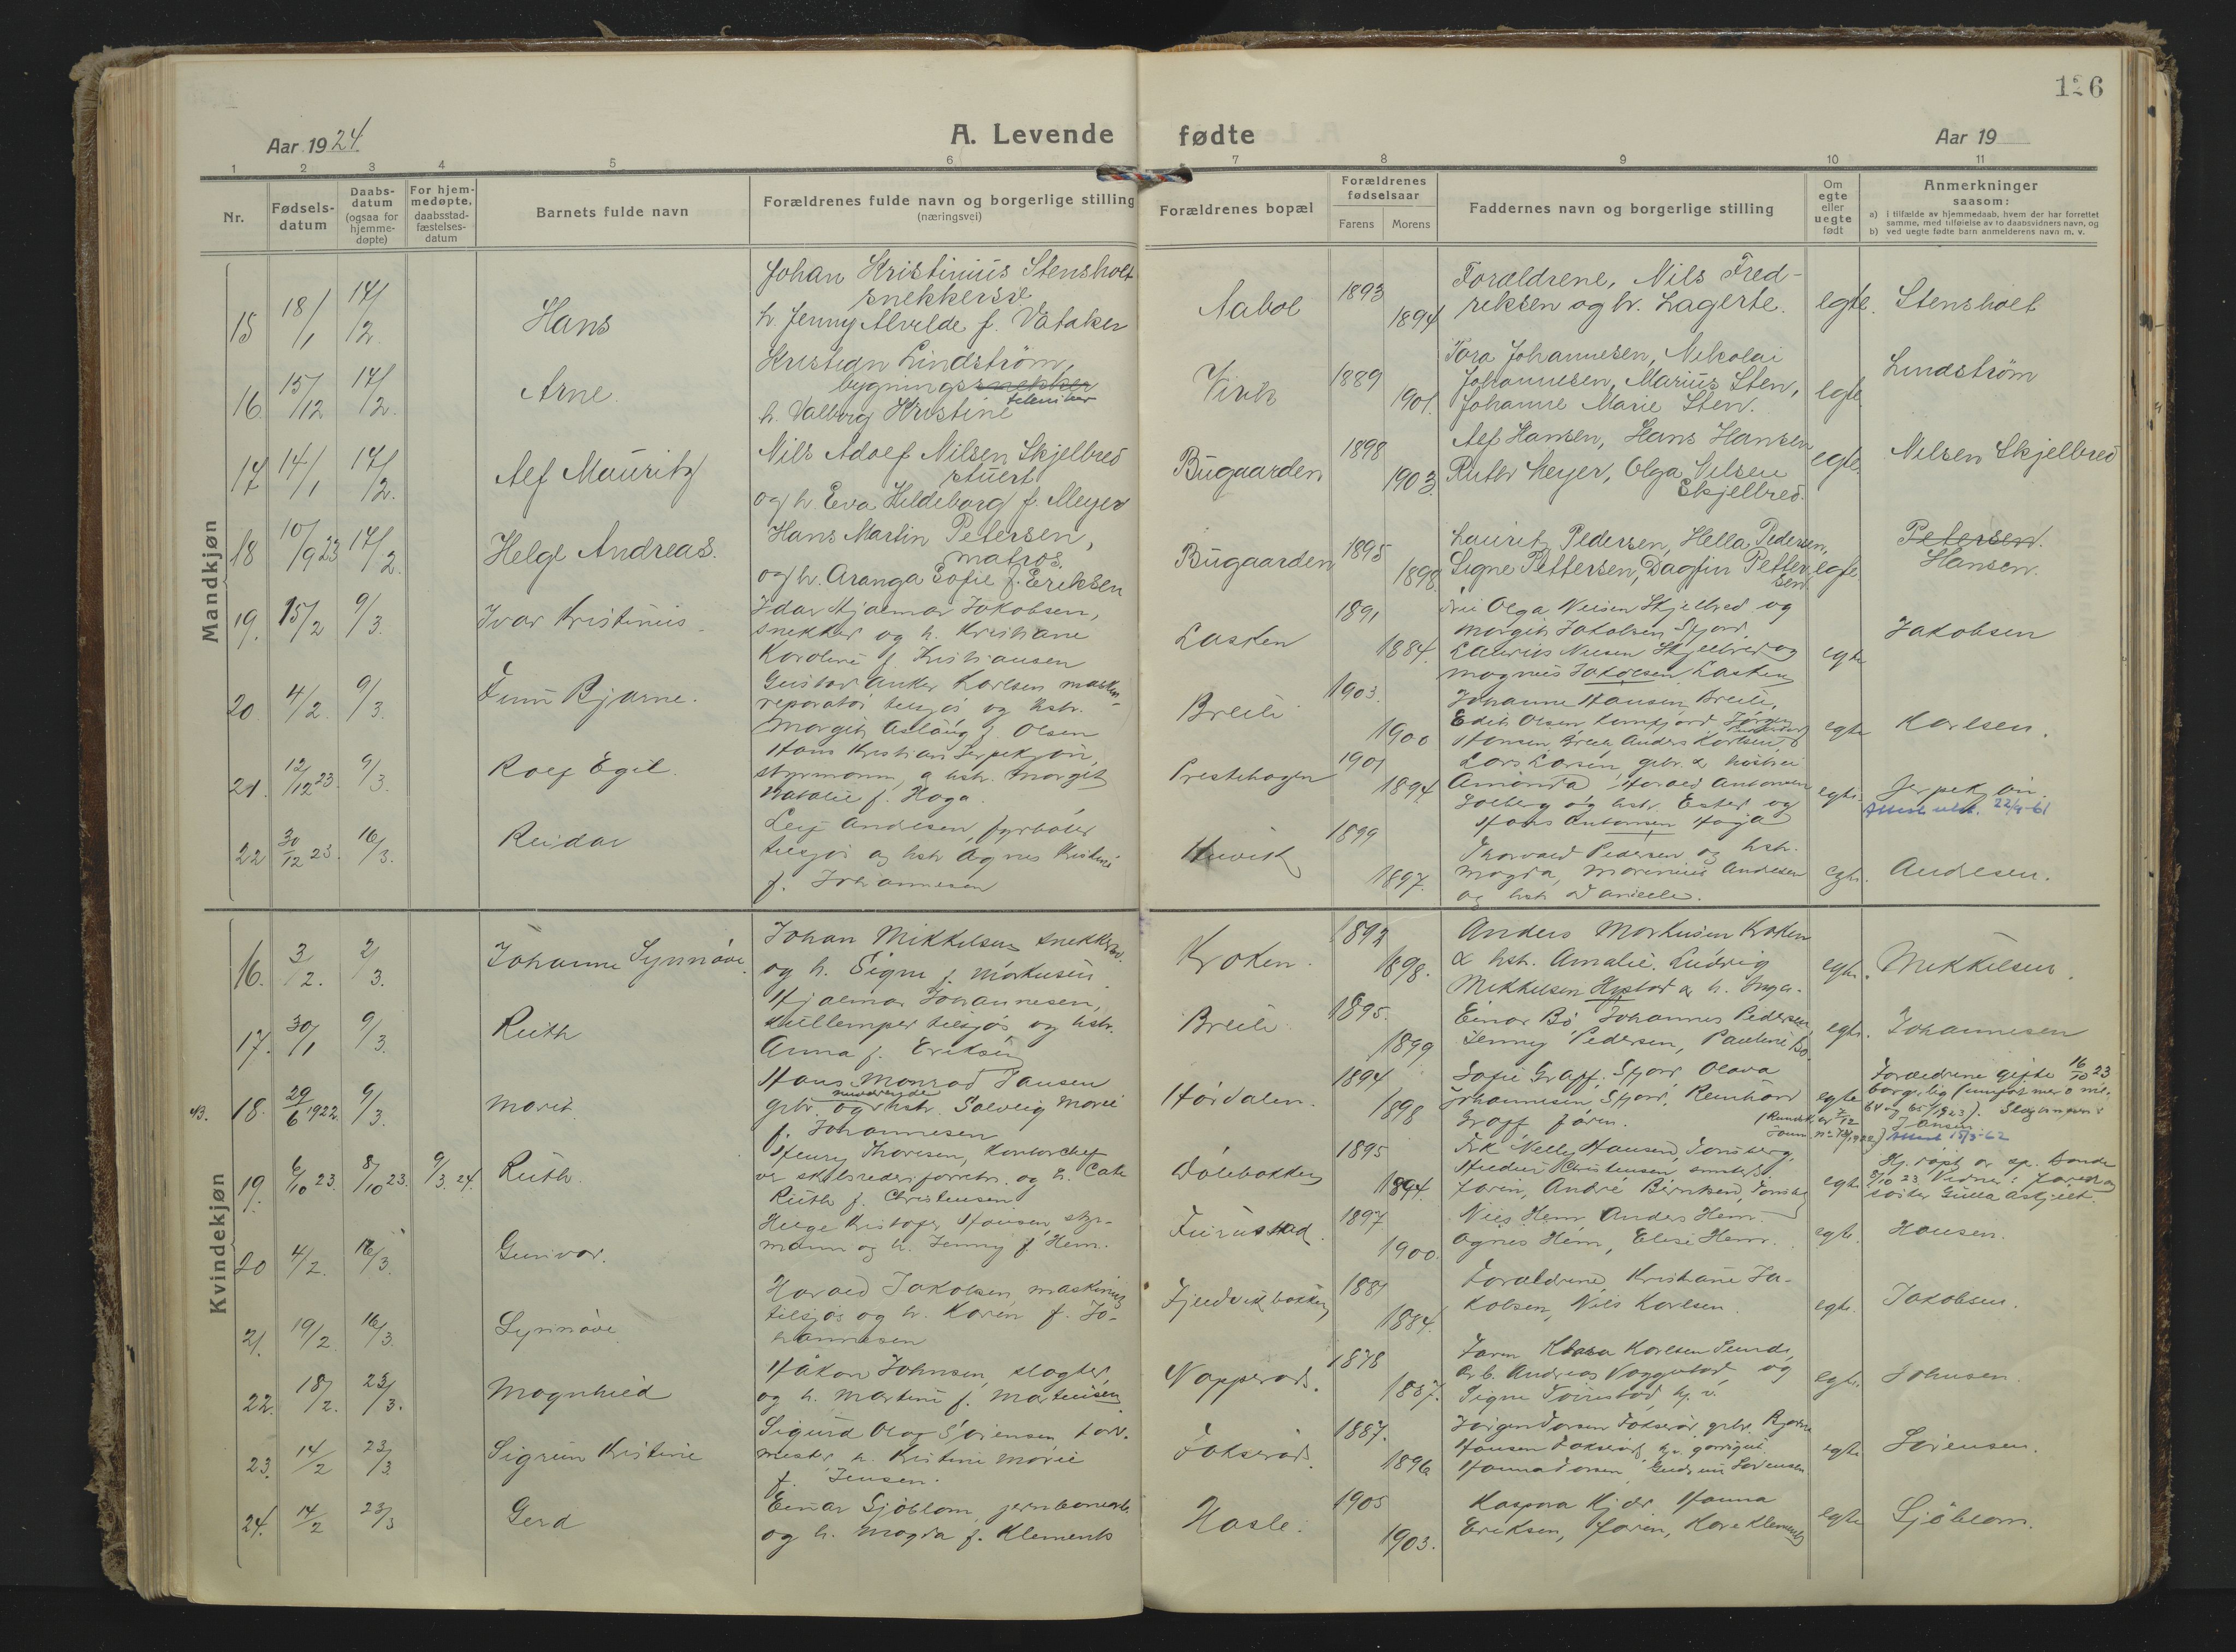 126
Aar 1924.
A. Levende fødte
Aar 19
1 2 3 4 5 6 7 8 9 10 11
Nr.
Fødsels-
datum
Daabs-
datum
(ogsaa for
hjemme-
døpte)
For hjem-
medøpte,
daabsstad-
fæstelses-
datum
Barnets fulde navn
Forældrenes fulde navn og borgerlige stilling
(næringsvei)
Forældrenes bopæl
Forældrenes
fødselsaar
Farens Morens
Faddernes navn og borgerlige stilling
Om
egte
eller
uegte
født
Anmerkninger
saasom:
a) i tilfælde av hjemmedaab, hvem der har forrettet
samme, med tilføielse av to daabsvidners navn, og
b) ved uegte fødte barn anmelderens navn m. v.
Mandkjøn
15 18/1 17/2. Hans
Johan Kristinius Stensholt
h. Jenny Alvilde f. Våtaker
Aabol
1893
1894
Forældrene, Nils Fred-
reksen og h. Lagerte.
egte. Stensholt
16 15/12 17/2. Arne.
Kristian Lindström,
bygningssnekker
tekniker
h. Valborg Kristine
Virik
1889
1901.
Tora Johannesen, Nikolai
Johannesen, Marius Sten,
Johanne Marie Sten.
egte Lindström
17 14/1 17/2. Alf Mauritz
Nils Adolf Nilsen Skjelbred
stuert
og h. Eva Hildeborg f. Meyer
Bugaarden
1898
1903.
Alf Hansen, Hans Hansen
Ruth Meyer, Olga Nilsen
Skjelbred.
egte. Nilsen Skjelbred
18 10/9 23 17/2. Helge Andreas.
Hans Martin Petersen,
matros.
og h. Aranga Sofie f. Eriksen
Bugaarden
1895
1898
Lauritz Pedersen, Hella Pedersen,
Signe Pettersen, Dagfin Petter-
sen.
egte Petersen.
Hansen.
19. 15/2 9/3. Ivar Kristinius
Idar Hjalmar Jakobsen,
snekker og h. Kristiane
Karoline f. Kristiansen
Lasken
1891
1884.
Olga Nilsen Skjelbred og
Margit Jakobsen Fjord,
Laurits Nilsen Skjelbred og
Magnus Jakobsen Lasken
egte Jakobsen
20. 4/2. 9/3. Finn Bjarne.
Gustav Anker Karlsen maskin-
reparatör tilsjös og hstr.
Margit Aslaug f. Olsen
Breili
1903.
1900
Johanne Hansen Breili,
Edit Olsen
Hansen Breili Anders Karlsen,
egte Karlsen.
21. 12/12 23. 9/3. Rolf Egil.
Hans Kristian Jerpekjön,
styrmann, og hstr. Margit
Natalie f. Haga.
Prestehagen
1901
1894
Lars Larsen, gbr. & hustru
Amanda, Harald Antonsen
Solberg og hstr. Ester og
Hans Antonsen Haga
egte. Jerpekjön.
22 30/12 23. 16/3. Reidar
Leif Andresen, fyrböter
tilsjös og hstr Agnes Kristine
f. Johannesen
Huvik
1899
1897.
Thorvald Pedersen og hstr.
Magda, Marinius Andresen
og hstr Danielle.
egte. Andresen.
Kvindekjøn
16. 3/2. 2/3. Johanne Synnöve.
Johan Mikkelsen snekker
og h. Signe f. Markusen
Kroken.
1892
1898.
Anders Markusen Kroken
& hstr. Amalie. Ludvig
Mikkelsen Hystad & h. Inga.
egte. Mikkelsen.
17. 30/1 9/3. Ruth
Hjalmar Johannesen,
kullemper tilsjös og hstr.
Anna f. Eriksen
Breili
1895.
1899
Einar Bö, Johannes Pedersen
Jenny Pedersen, Pauline Bö.
egte. Johannesen
18. 29/6 1922. 9/3. Marit.
Hans Monrad Jansen
gbr. og hstr. Solveig Marie
f. Johannesen
Hördalen.
1894
1898
Sofie Graff, Fjord Olava
Johannesen Fjord, Reinhard
Graff, faren.
egte
Forældrene gifte 16/10 23
Jansen
19. 6/10 23. 8/10 23. 9/3. 24. Ruth.
Henry Thoresen, kontorchef
og h. Cate
Ruth f. Christensen
Dölebakken
1895
1894.
Frk Nelly Hansen, Tönsberg,
faren, André
egte
20 4/2. 16/3. Gunvor.
Helge Kristofer Hansen, styr-
mann og h. Jenny f. Hem.
Furustad.
1897
1900.
Nils Hem, Anders Hem.
Agnes Hem, Elise Hem.
egte. Hansen.
21. 19/2. 16/3. Synnöve
Harald Jakobsen maskinist
tilsjös og h. Karen f. Jo-
hannesen
Fjeldvikbakken
1881
1884.
Forældrene, Kristiane Ja-
kobsen, Nils Karlsen.
egte. Jakobsen.
22. 18/2. 23/3. Magnhild
Håkon Johnsen, slagter,
og h. Martine f. Martinsen
Napperöd.
1878
1887.
Signe
egte. Johnsen.
23. 14/2 23/3 Sigrun Kristine
Sigurd Olaf Sörensen,
h. Kristine Marie
f. Jensen.
Fokseröd.
1887.
1896
egte Sörensen.
24. 14/2 23/3 Gerd
Einar Sjöblom, jernbanearb.
og h. Magda f. Klements
Hasle.
1905
1903.
Kaspara Hanna
Eriksen, faren, Kare Klements
egte Sjöblom.